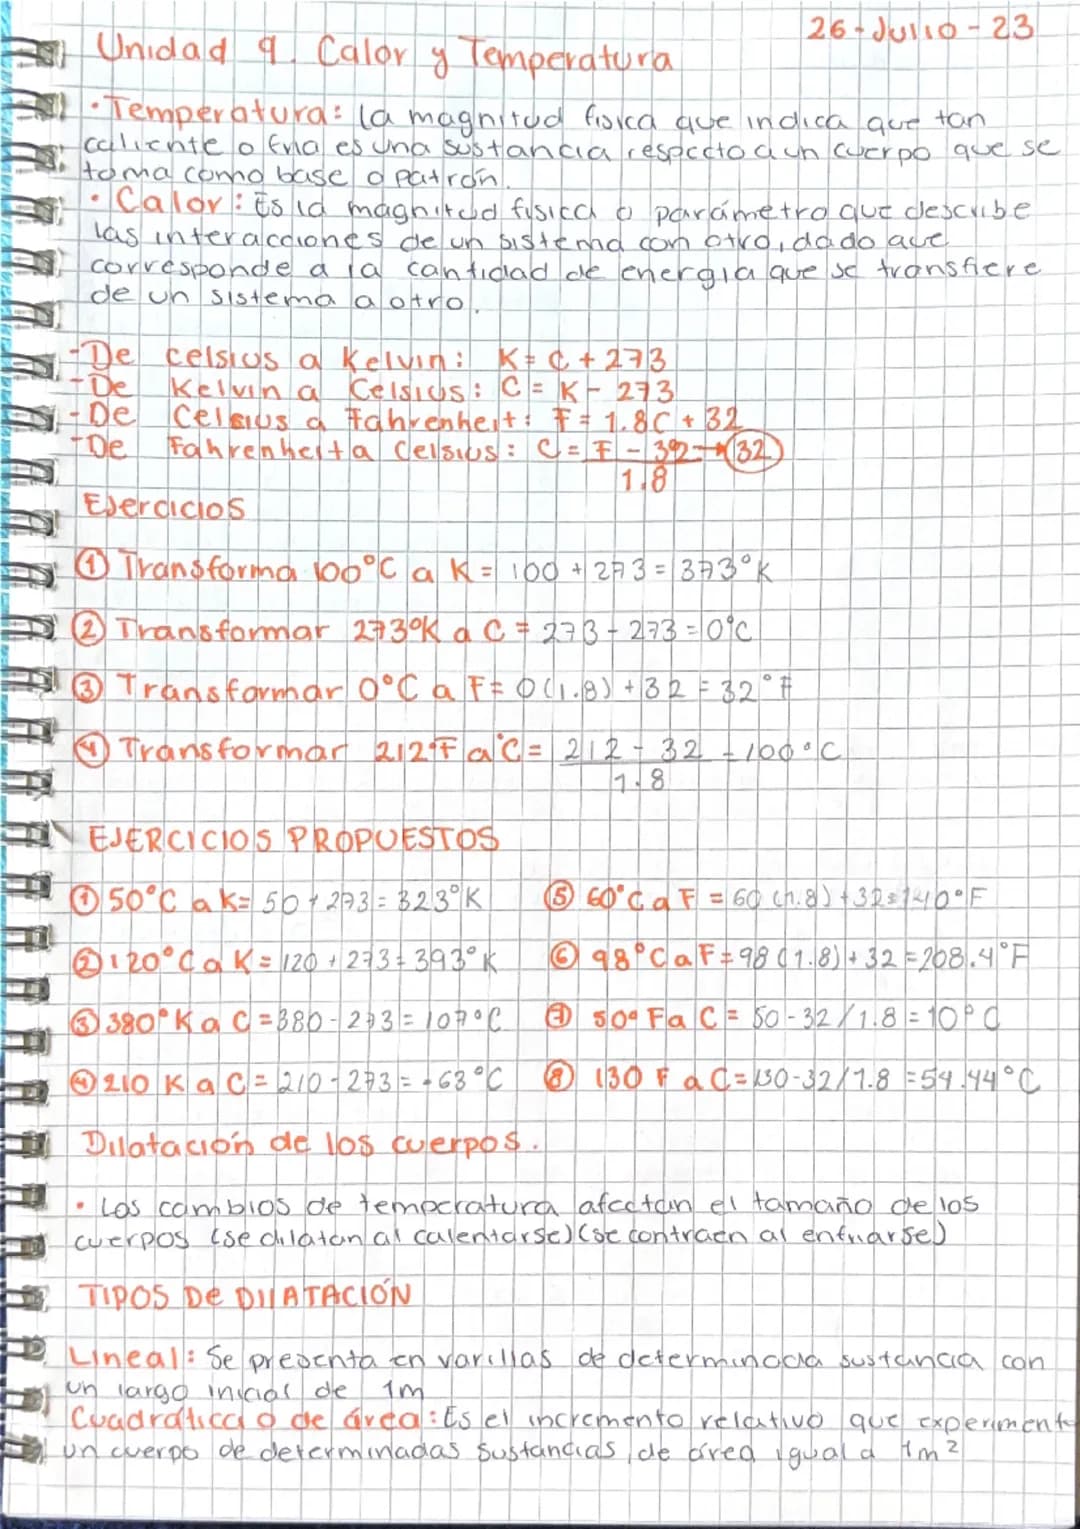 26-Julio-23
Unidad 9. Calor y Temperatura
• Temperatura: la magnitud física que indica que tan
caliente o fría es una sustancia respecto a un cuerpo que se
toma como base o patrón.
• Calor: Es la magnitud física o parámetro que describe
las interacciones de un sistema con otro, dado que
corresponde a la cantidad de energía que se transfiere
de un sistema a otro.
-De celsius a Kelvin: K= C + 273
-De Kelvin a Celsius: C = K - 273
-De Celsius a Fahrenheit: F = 1.8C + 32
-De Fahrenheit a Celsius: C = F - 32 → 32
1.8
Ejercicios
① Transforma 100°C a K = 100 + 273 = 373°K
② Transformar 273°K a C = 273 - 273 = 0°C
③ Transformar 0°C a F = 0(1.8) + 32 = 32°F
④ Transformar 212°F a °C = 212 - 32 = 100°C
1.8
EJERCICIOS PROPUESTOS
① 50°C a K= 50 + 273 = 323°K
⑤ 60°C a F = 60 (1.8) + 32 = 140°F
② 120°C a K = 120 + 273 = 393°K
⑥ 98°C a F = 98 (1.8) + 32 = 208.4°F
③ 380°K a C = 380 - 273 = 107°C
⑦ 50° F a C = 50 - 32 / 1.8 = 10°C
④ 210 K a C = 210 - 273 = -63°C
⑧ 130 F a C = 130-32/1.8 = 54.44°C
Dilatación de los cuerpos.
• Los cambios de temperatura afectan el tamaño de los
cuerpos (se dilatan al calentarse) (se contraen al enfriarse)
TIPOS De DIlATACIÓN
Lineal: Se presenta en varillas de determinada sustancia con
un largo inicial de 1m
Cuadrática o de área: Es el incremento relativo que experiment
un cuerpo de determinadas sustancias, de área igual a 1m²